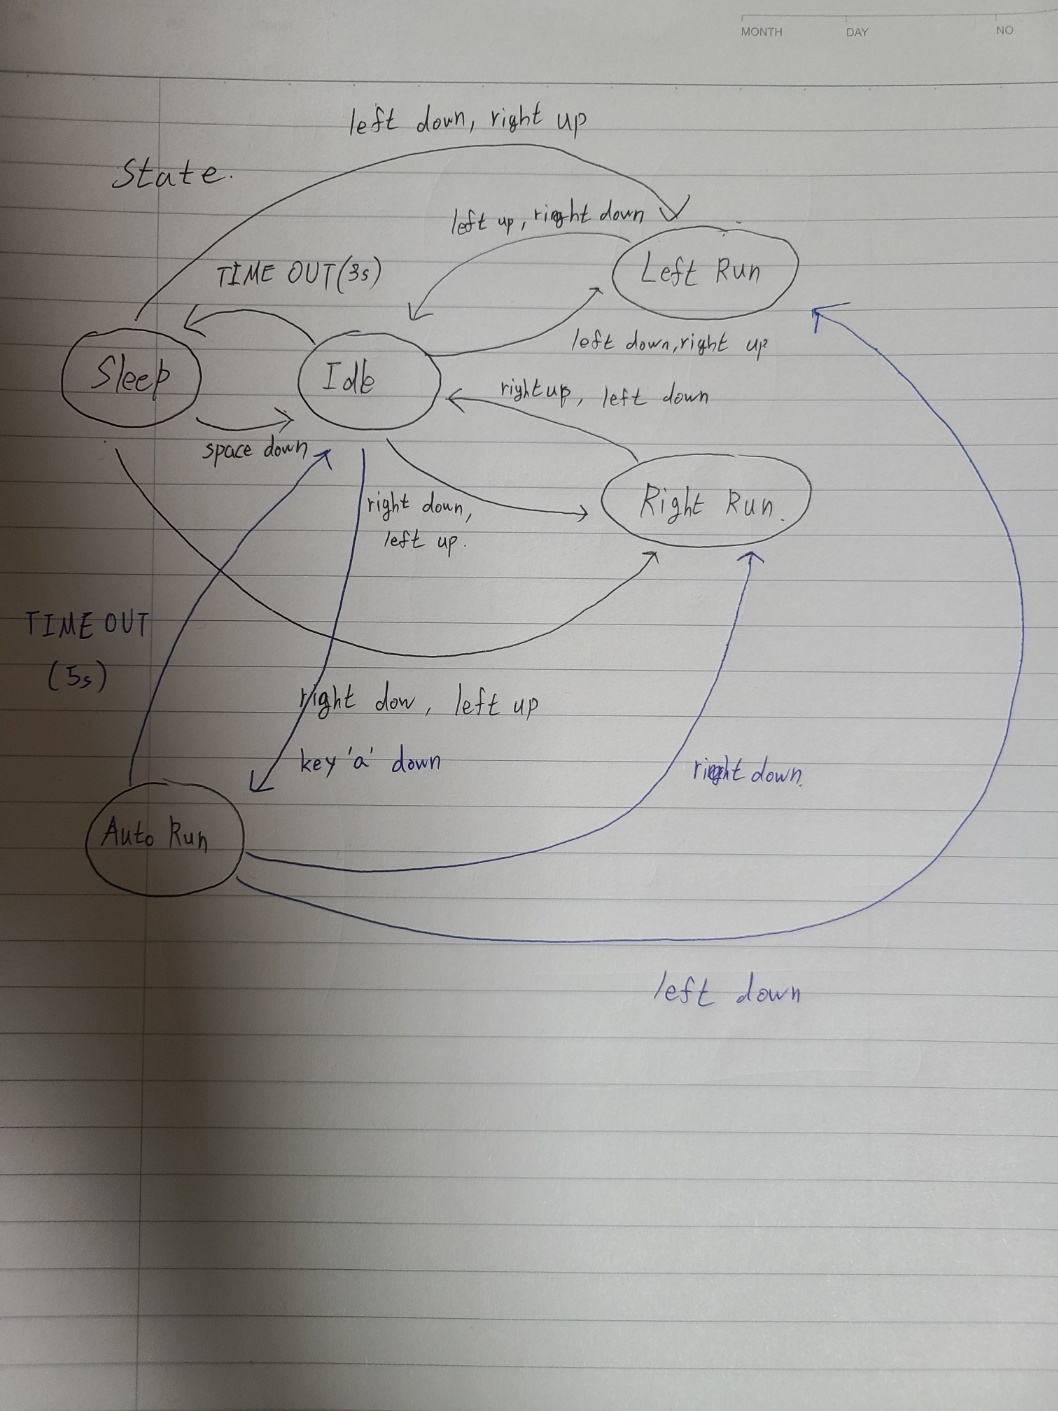 MONTH DAY NO
left down, right up
State.
left up, right down
TIME OUT(3s)
Left Run
left down, right up
Sleep
Idle
right up, left down
space down
right down,
left up.
Right Run.
TIME OUT
(5s)
right dow, left up
key 'a' down
right down.
Auto Run
left down